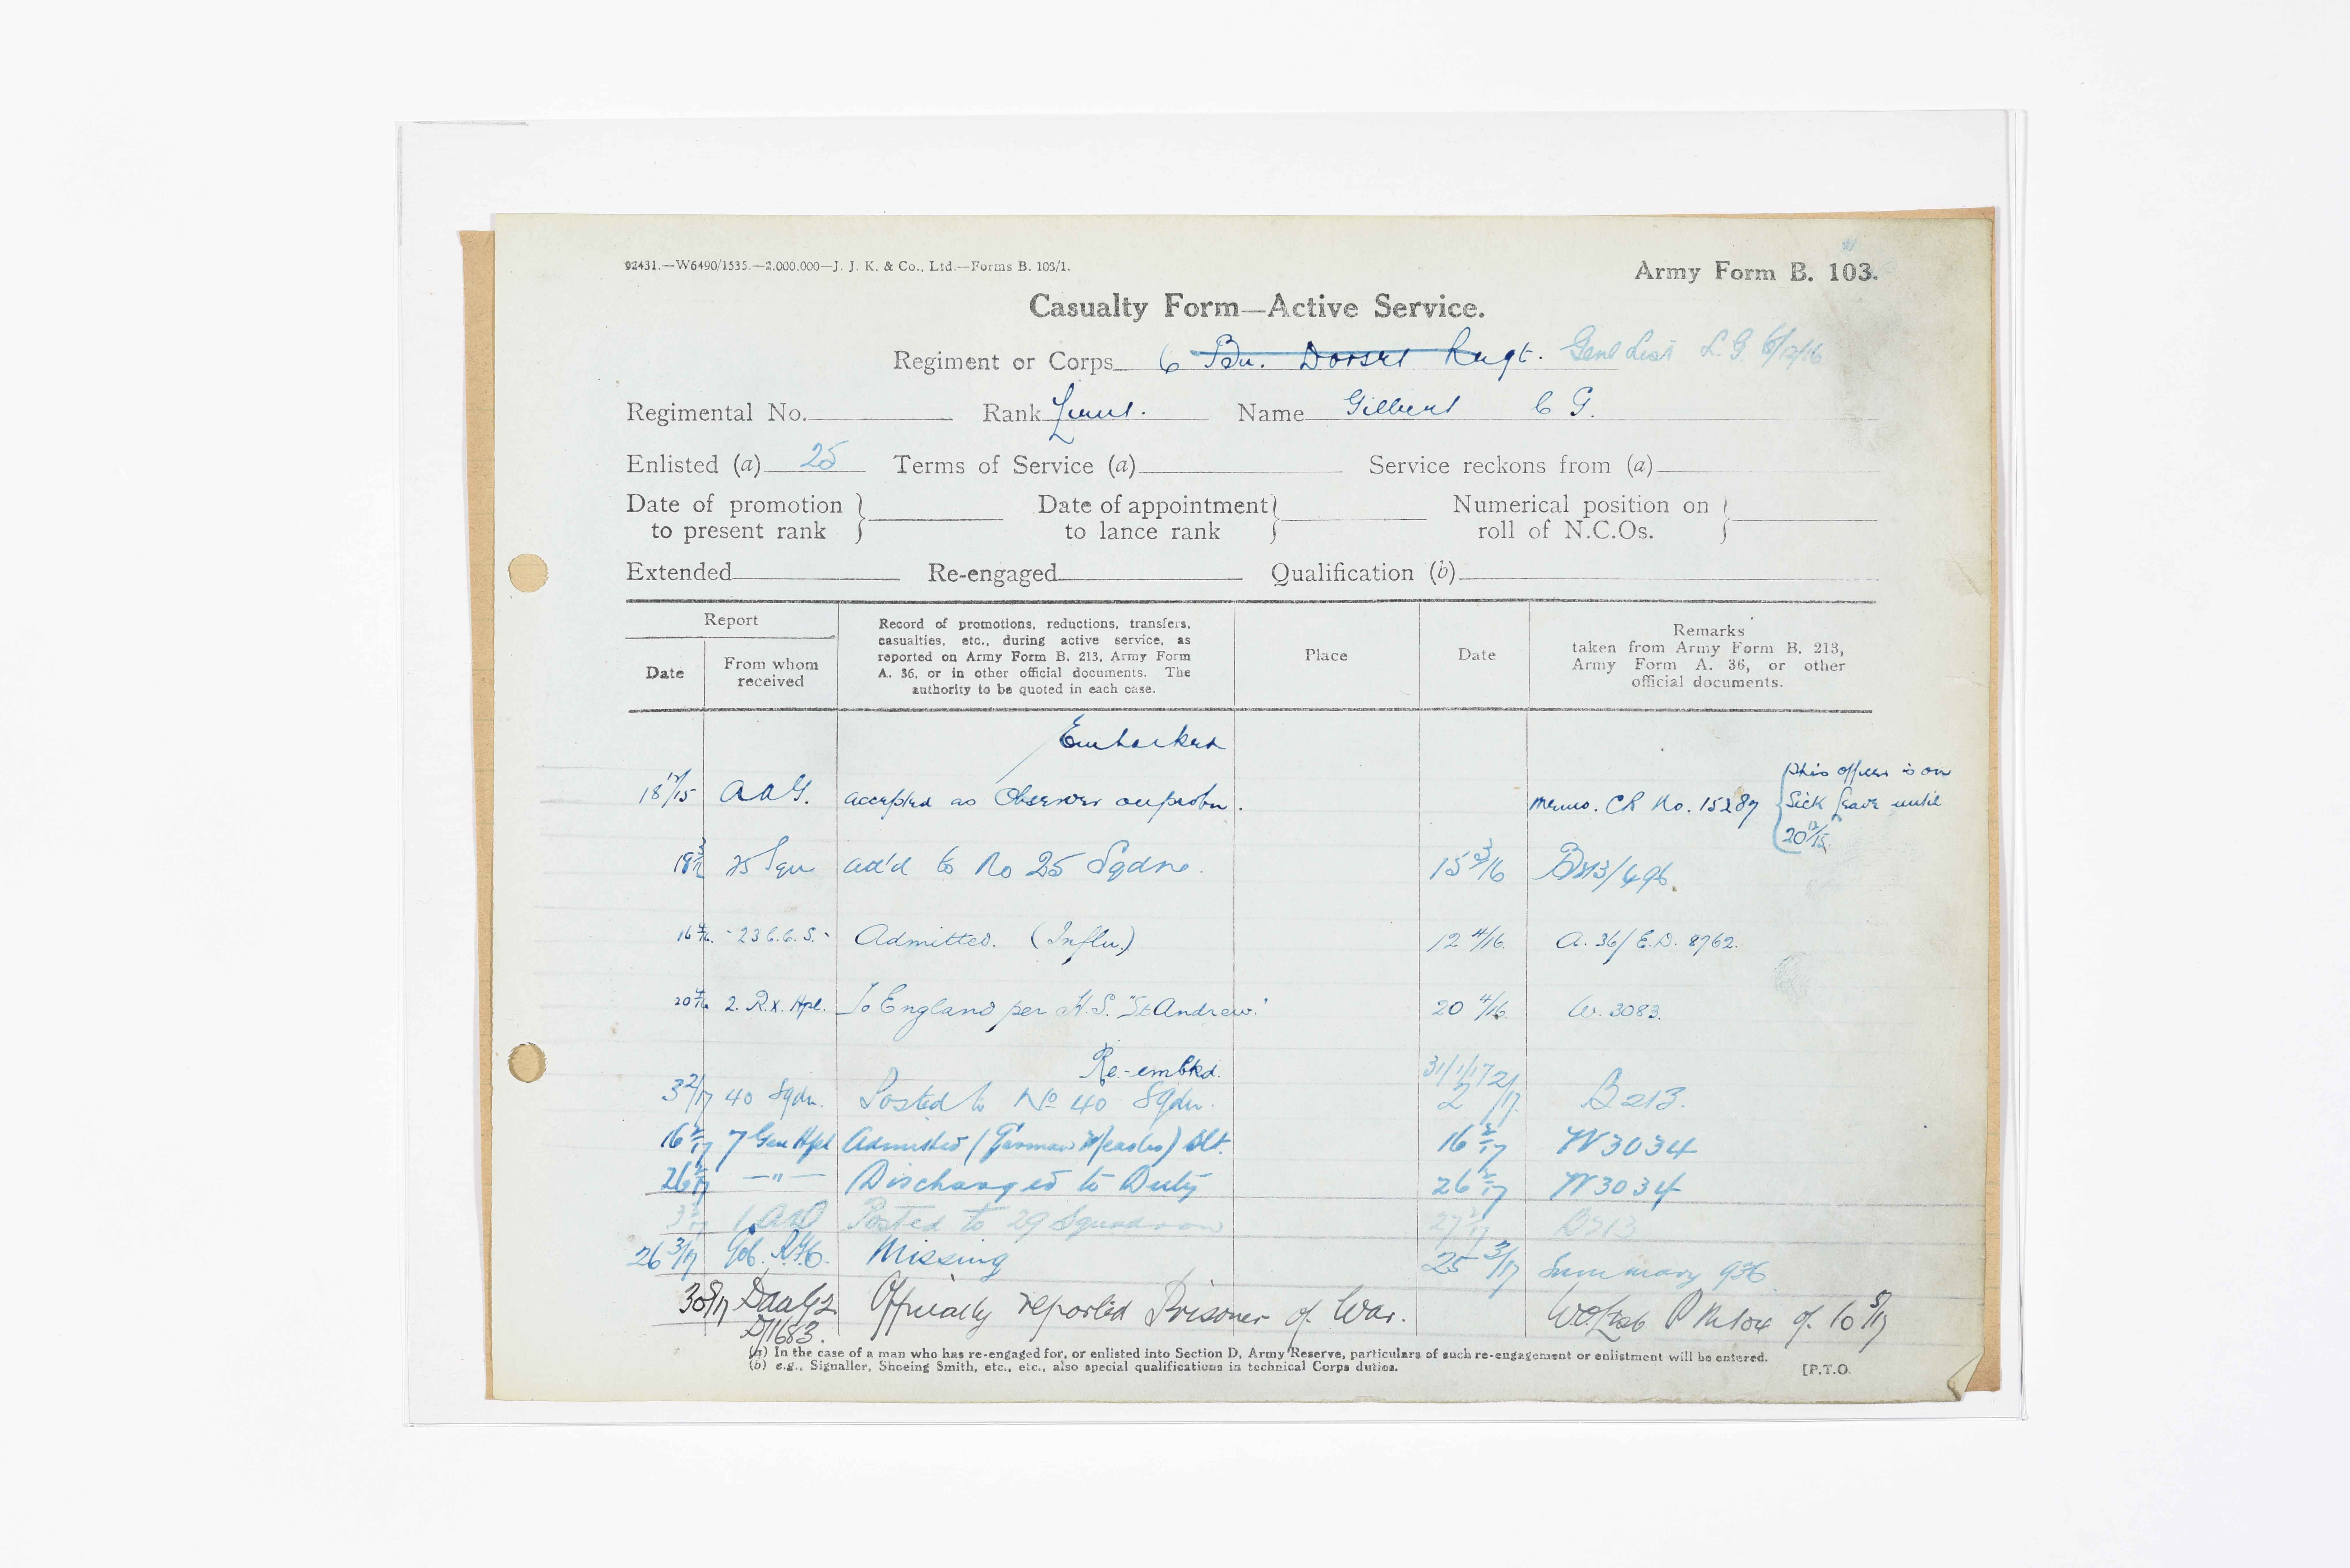 92431.—W6490/1535.—2,000,000—J. J. K. & Co., Ltd.—Forms B. 103/1.
Army Form B. 103.
Casualty Form—Active Service.
Regiment or Corps 6 Bn. Dorset Regt. Genl List L.G. 6/12/16
Regimental No. Rank Lieut. Name Gilbert C G.
Enlisted (a) 25 Terms of Service (a) Service reckons from (a)
Date of promotion to present rank } Date of appointment to lance rank } Numerical position on roll of N.C.Os. }
Extended Re-engaged Qualification (b)
Report
Date
From whom received
Record of promotions, reductions, transfers,
casualties, etc., during active service, as
reported on Army Form B. 213, Army Form
A. 36, or in other official documents. The
authority to be quoted in each case.
Place
Date
Remarks
taken from Army Form B. 213,
Army Form A. 36, or other
official documents.
Embarked
18 12/15 AAG. accepted as Observer on probn. memo. CR No. 15287 { This officer is on
Sick leave until
20 12/15.
18 3/16 25 Sqn att'd to No 25 Sqdn. 15 3/16 B213/496.
16 4/16. 23 C.C.S. Admitted. (Influ.) 12 4/16. A. 36/E.D. 8762.
20 4/16 2. R.X. Hpl. To England per H.S. "St Andrew." 20 4/16. W. 3083.
Re-embkd. 31/1/17
3 2/17 40 Sqdn. Posted to No 40 Sqdn. 2 2/17. B213.
16 2/17 7 Gen Hpl Admitted (German Measles) Slt. 16 2/17 W3034
26 2/17 —"— Discharged to Duty 26 2/17 W3034
3 3/17 1 AD Posted to 29 Squadron 27 2/17 B213
26 3/17 R.F.C. Missing 25 3/17 Summary 936
30 5/17 DAAG2 Officially reported Prisoner of War. of 10 5/17
D/1683.
(a) In the case of a man who has re-engaged for, or enlisted into Section D, Army Reserve, particulars of such re-engagement or enlistment will be entered.
(b) e.g., Signaller, Shoeing Smith, etc., etc., also special qualifications in technical Corps duties.
[P.T.O.